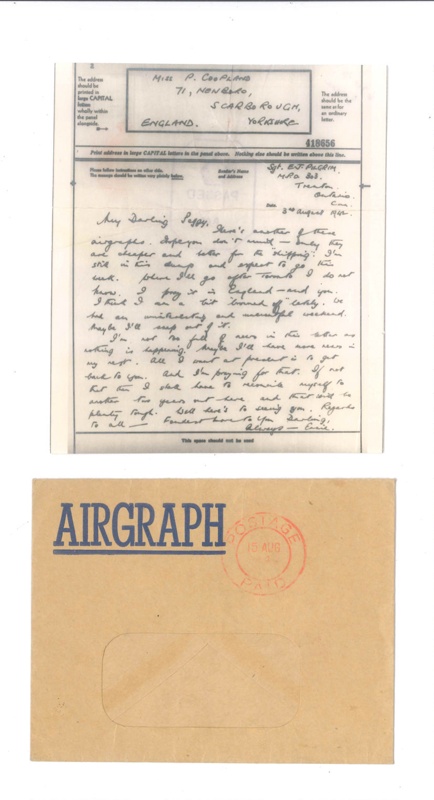 The address
should be
printed in
large CAPITAL
letters
wholly within
the panel
alongside.
MISS P. COOPLAND
71, NEWBORO,
SCARBOROUGH,
ENGLAND. YORKSHIRE
The address
should be the
same as for
an ordinary
letter.
418656
Print address in large CAPITAL letters in the panel above. Nothing else should be written above this line.
Please follow instructions on other side.
The message should be written very plainly below.
Sender's Name
and Address
Sgt. E.J. PILGRIM,
M.P.O. 303
Trenton
Ontario
Can.
Date 3rd August 1942
My Darling Peggy,
Here's another of these
airgraphs. Hope you don't mind — only they
are cheaper and better for the shipping. I'm
still in this dump and expect to go this
week. Where I'll go after I do not
know. I pray it is England — and you.
I think I am a bit browned off lately. We
had an uninteresting and weekend.
Maybe I'll snap out of it.
I'm not too full of news in this letter as
nothing is happening. Maybe I'll have more news in
my next. All I want at present is to get
back to you. And I'm praying for that. If not
that then I shall have to reconcile myself to
another two years out here, and that will be
plenty tough. Well here's to seeing you. Regards
to all — Fondest love to You Darling,
Always — Ernie.
This space should not be used
AIRGRAPH
POSTAGE
15 AUG
PAID